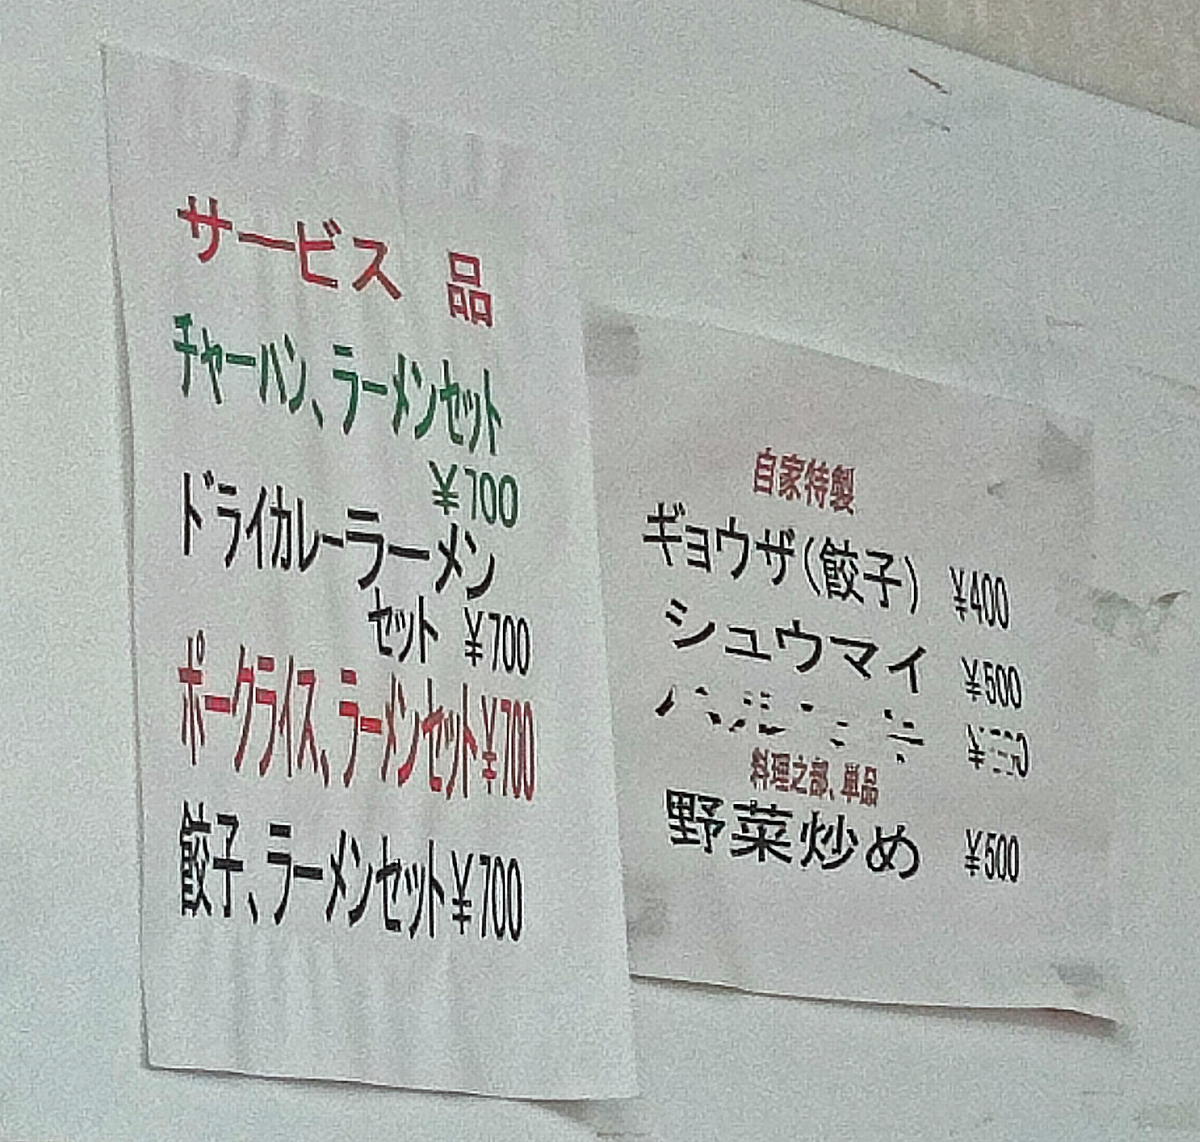 サービス 品
チャーハン、ラーメンセット
¥700
ドライカレーラーメン
セット ¥700
ポークライス、ラーメンセット¥700
餃子、ラーメンセット¥700
自家特製
ギョウザ(餃子) ¥400
シュウマイ ¥500
料理之部、単品
野菜炒め ¥500